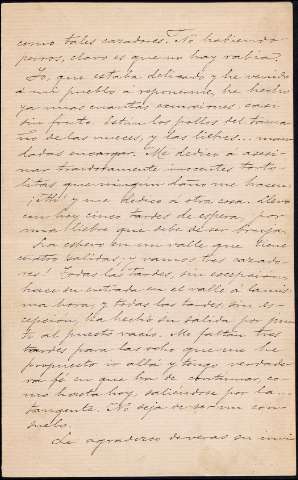 como tales cazadores. No habiendo
perros, claro es que no hay rabia?
Yo, que estaba delicado y he venido
á mi pueblo á reponerme, he hecho
ya unas cuantas escursiones, casi
sin fruto. Están los pollos del tama-
ño de las nueces, y las liebres... man-
dadas encargar. Me dedico á asesi-
nar traidoramente inocentes torto-
litas que ningun daño me hacen.
¡Ah! y me dedico á otra cosa. Llevo
con hoy cinco tardes de espera, por
una liebre que debe de ser bruja.
La espero en un valle que tiene
cuatro salidas, y vamos tres cazado-
res! Todas las tardes, sin escepción,
hace su entrada en el valle á la mis-
ma hora, y todas las tardes, sin es-
cepción, ha hecho su salida por
el puesto vacio. Me faltan tres
tardes para las ocho que me he
propuesto ir allá y tengo verdade-
ra fé en que ha de continuar, co-
mo hasta hoy, saliéndose por la...
tangente. No deja de ser un con-
suelo.
Le agradezco de veras su